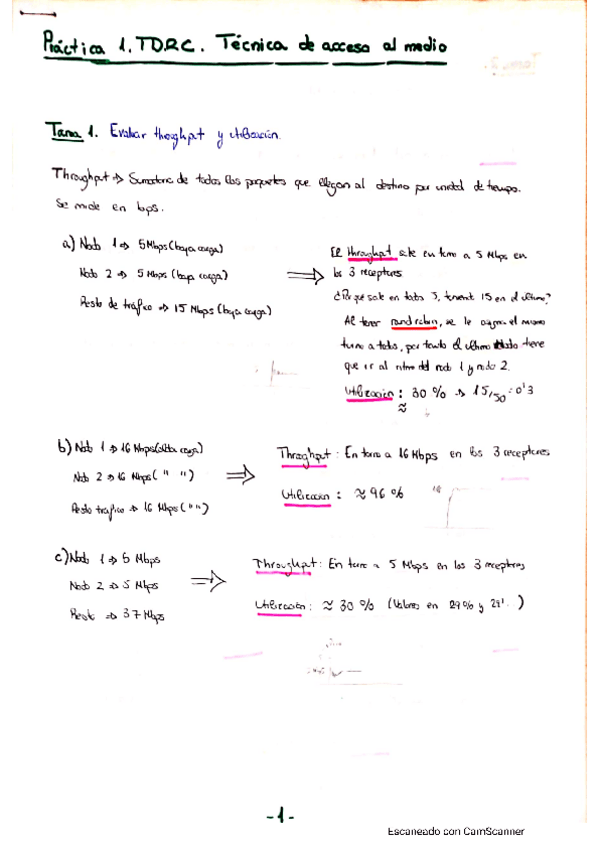 Práctica 1. TDRC. Técnica de acceso al medio
Tarea 1. Evaluar throughput y utilización.
Throughput => Sumatorio de todos los paquetes que llegan al destino por unidad de tiempo.
Se mide en bps.
a) Nodo 1 => 5 Mbps (baja carga)
Nodo 2 => 5 Mbps (baja carga)
Resto de tráfico => 15 Mbps (baja carga)
=>
El throughput sale en torno a 5 Mbps en
los 3 receptores
¿Por qué sale en todos 5, teniendo 15 en el último?
Al tener round robin, se le asigna el mismo
turno a todos, por tanto el último nodo tiene
que ir al ritmo del nodo 1 y nodo 2.
Utilización : 30 % => 15/50 = 0'3
≈
b) Nodo 1 => 16 Mbps (alta carga)
Nodo 2 => 16 Mbps ( " " )
Resto trafico => 16 Mbps ( " " )
=>
Throughput : En torno a 16 Mbps en los 3 receptores
Utilización : ≈ 96 %
c) Nodo 1 => 5 Mbps
Nodo 2 => 5 Mbps
Resto => 37 Mbps
=>
Throughput : En torno a 5 Mbps en los 3 receptores
Utilización : ≈ 30 % (Valores en 29% y 28%. )
-1-
Escaneado con CamScanner